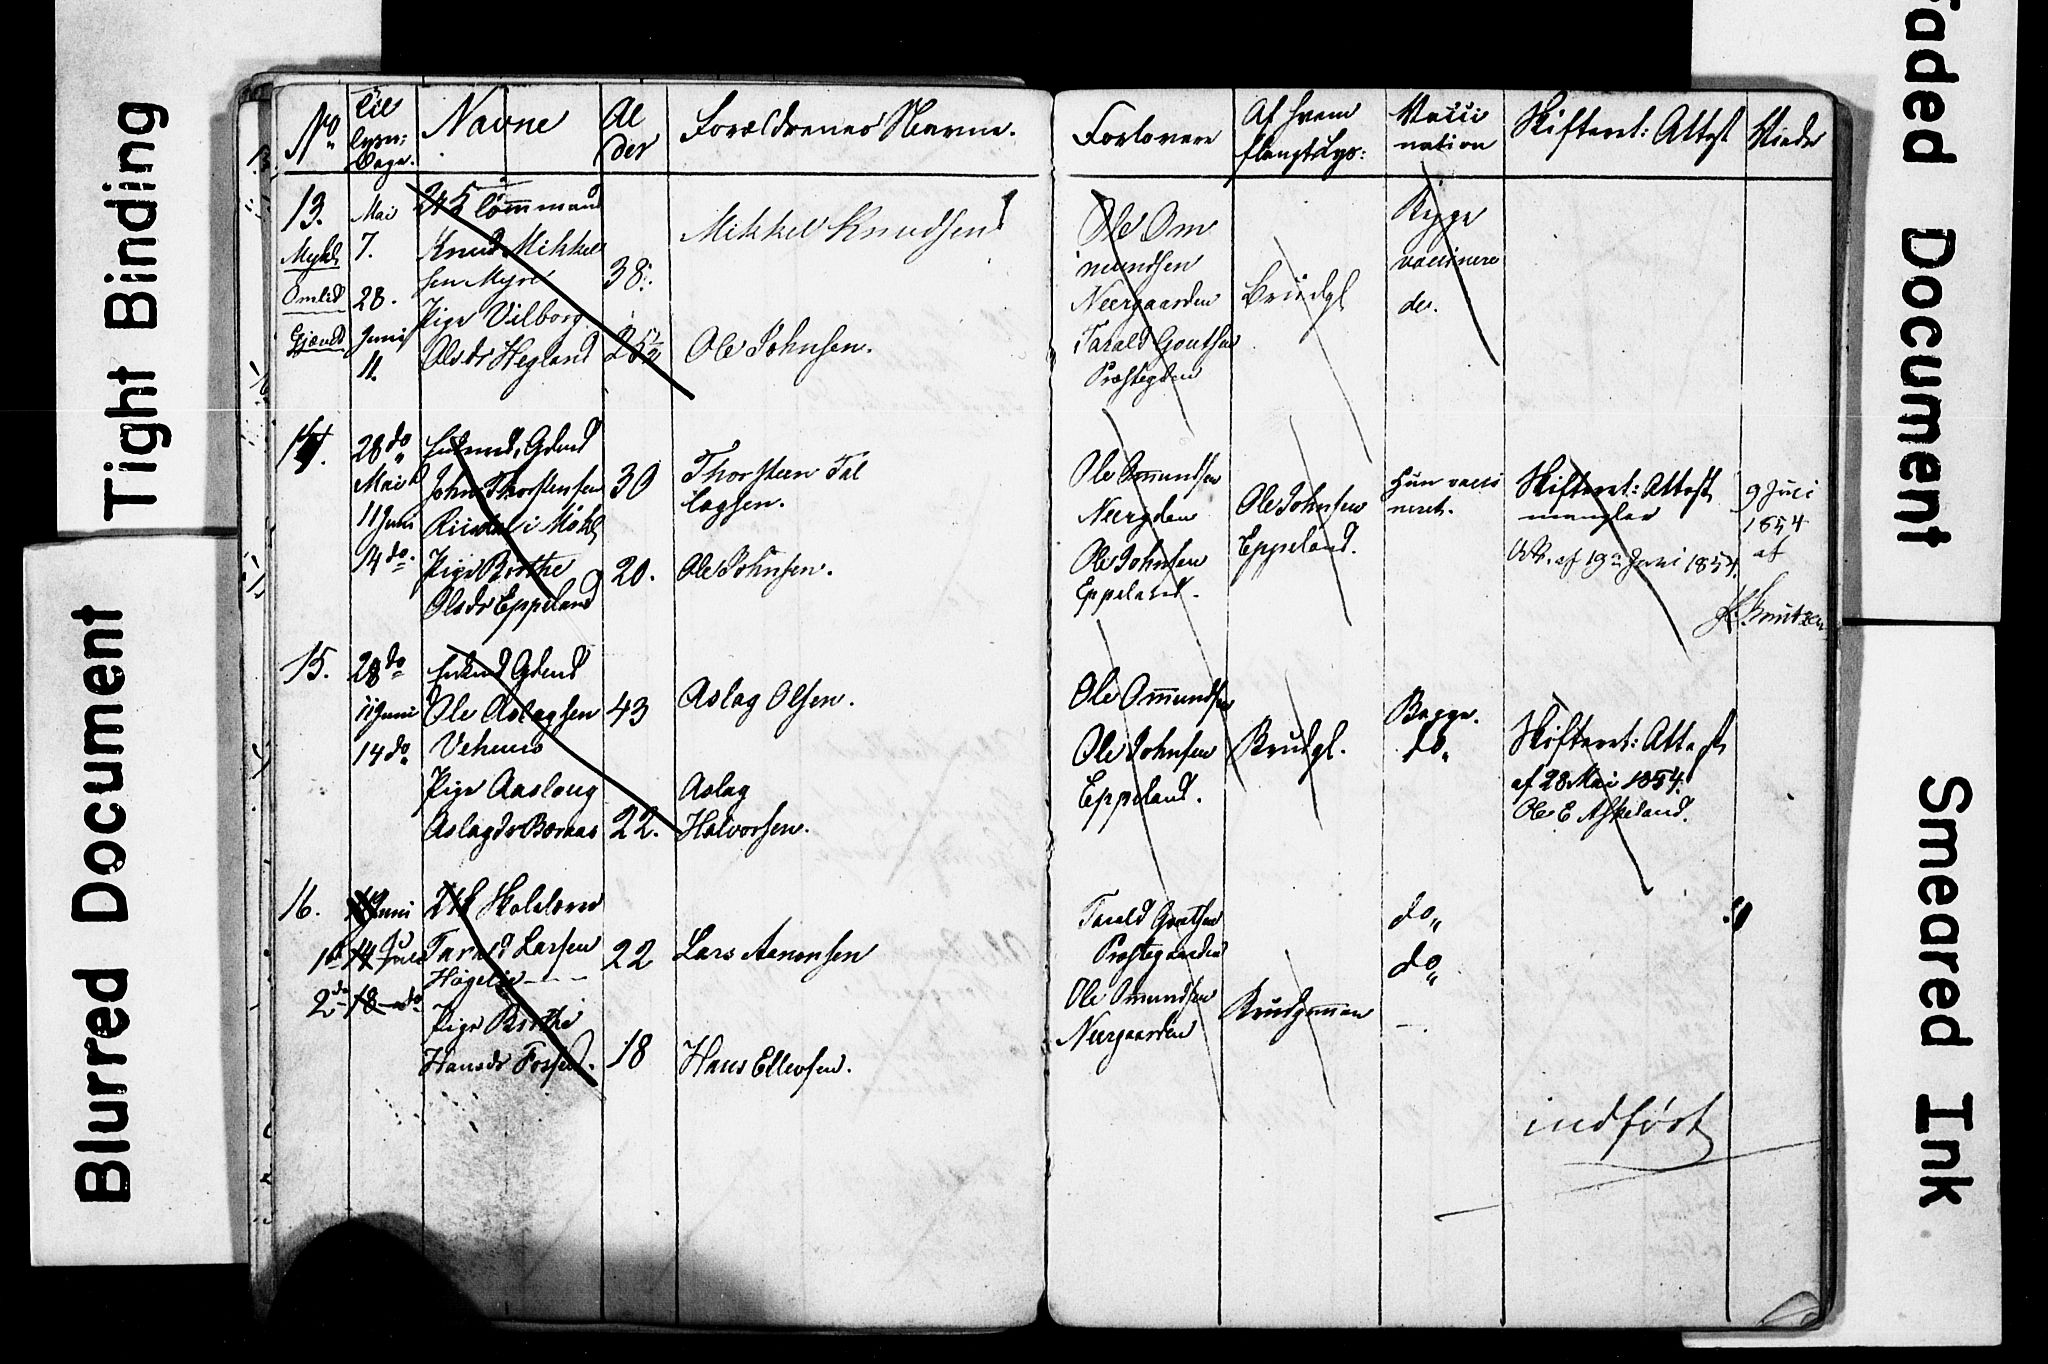 Tight Binding
Blurred Document
Faded Document
Smeared Ink
No
Til
lysn:
Dage.
Navne
Al
der
Forældrenes Navne.
Forlovere
Af hvem
forlangt Lys:
Vacci
nation
Skifteret: Attest
Viede
13.
Mykl
Omlid
Gjævd
Mai
7.
28.
Juni
11.
Knud Mikkel
sen Myre
Pige Vilborg
Olsdr Hegland
38.
25½
Mikkel Knudsen
Ole Johnsen.
Ole Om
mundsen
Neergaarden
Tarald Gouthsen
Præstegden
Brudgl
Begge
vaccinere
de.
14.
28 do
Mai
11 Juni
14 do
Enkmd, Gdmd
John Thorstensen
i Mykl
Pige Berthe
Olsdr Eppeland
30
20.
Thorsteen Tal
lagsen.
Ole Johnsen.
Ole Ommundsen
Neergden
Ole Johnsen
Eppeland.
Ole Johnsen
Eppeland.
Hun vacci
neret.
Skifteret: Attest
mangler
af 19de Juni 1854.
9 Juli
1854
af
Knutzen
15.
28 do
11 Juni
14 do
Enkmd Gdmd
Ole Aslagsen
Vehuus
Pige Aasloug
Aslagdr
43
22.
Aslag Olsen.
Aslag
Halvorsen.
Ole Ommundsen
Ole Johnsen
Eppeland.
Brudgl.
Begge.
do.
Skifteret: Attest
af 28 Mai 1854.
Ole E Askeland.
16.
Juni
1ste 14 Juli
2den 18 do
Tarald Larsen
Pige Berthe
Hansdr
22
18
Lars Aanonsen
Hans Ellevsen.
Tarald Gouthsen
Præstegaarden
Ole Ommundsen
Neergaarden
Brudgommen
do.
do.
indført